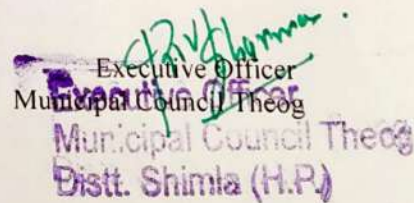 Executive Officer
Municipal Council Theog
Executive Officer
Municipal Council Theog
Distt. Shimla (H.P.)